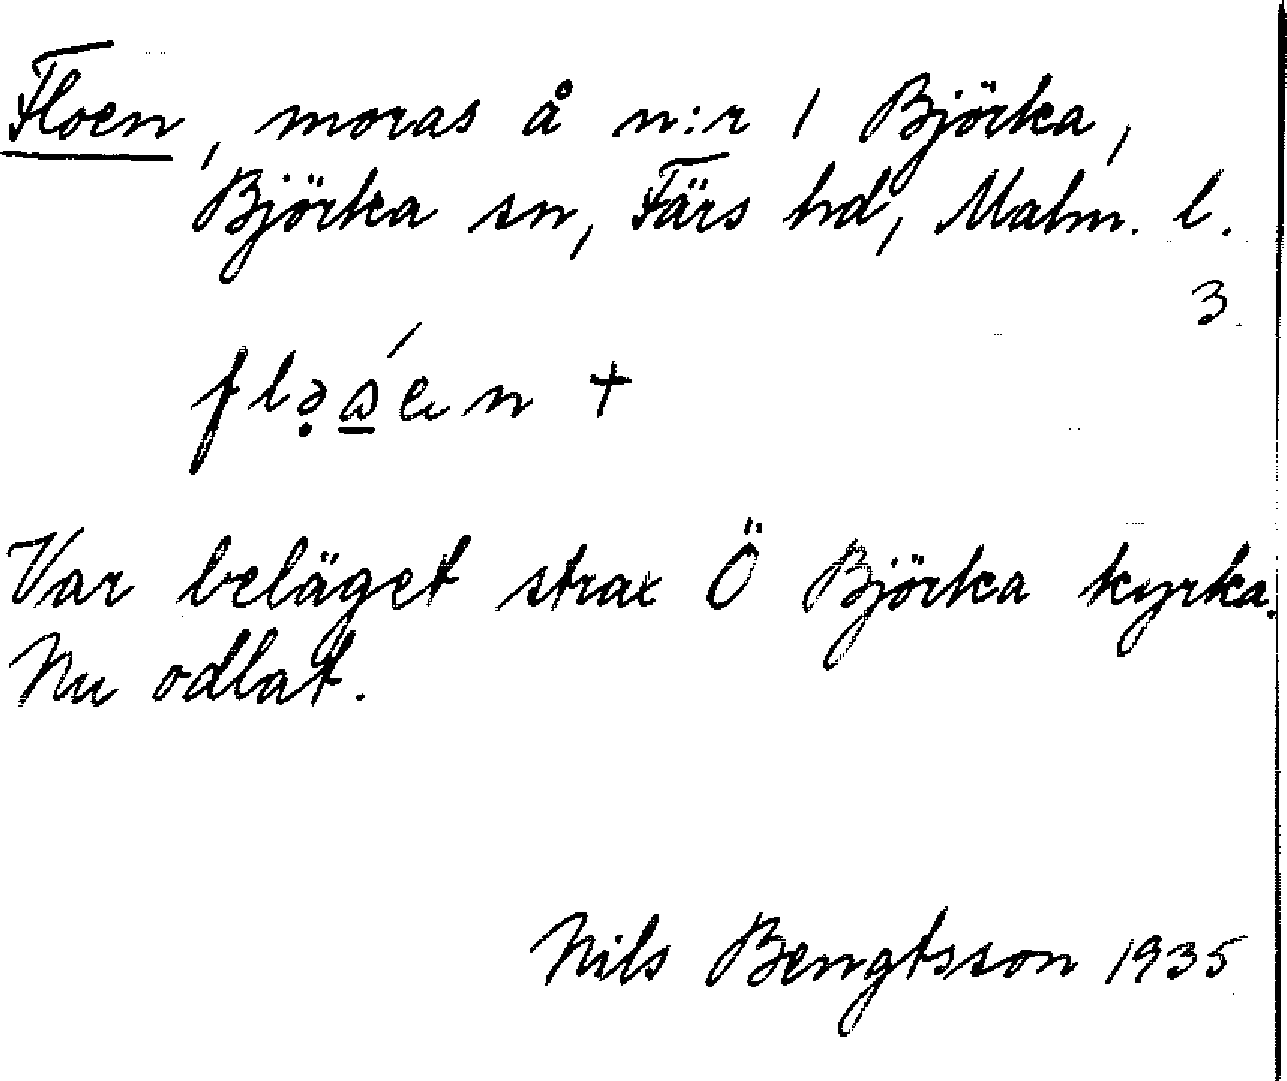 Floen, moras å n:r 1 Björka,
Björka sn, Färs hd, Malm. l.
3
Var beläget strax Ö Björka kyrka.
Nu odlat.
Nils Bengtsson 1935